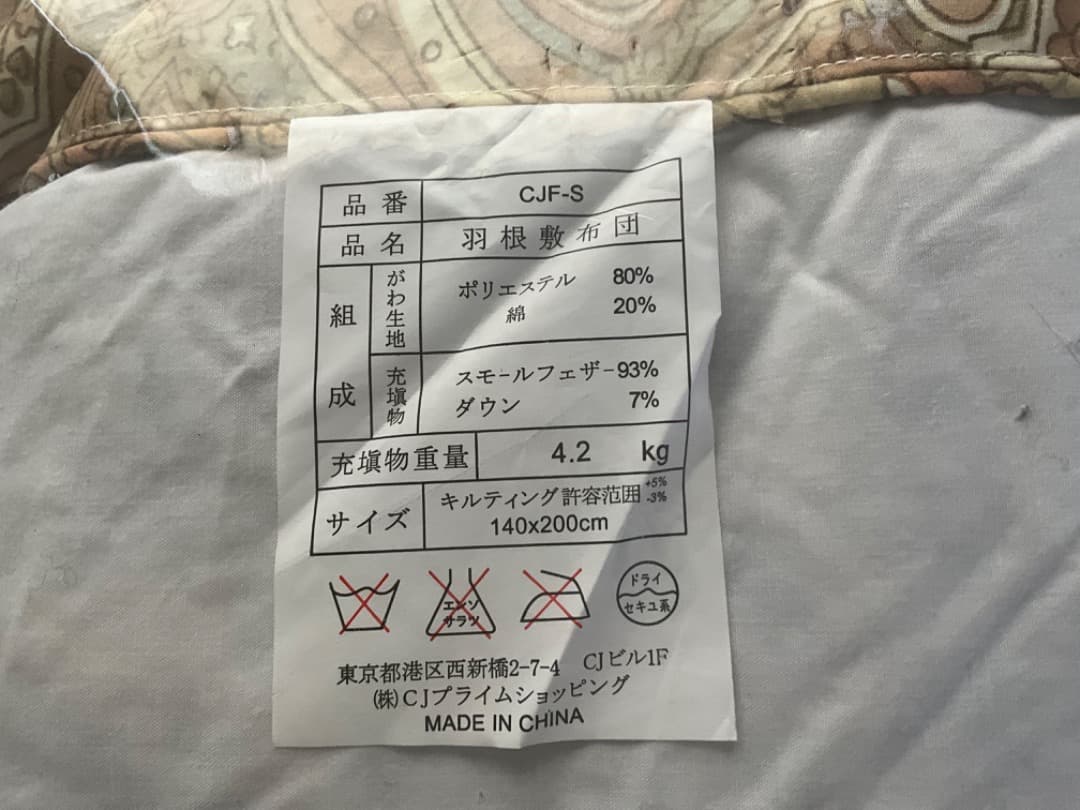 品番 CJF-S
品名 羽根敷布団
組成 がわ生地 ポリエステル 80%
綿 20%
充填物 スモールフェザー93%
ダウン 7%
充填物重量 4.2 kg
サイズ キルティング許容範囲 +5% -3%
140x200cm
エンソサラシ
ドライ
セキユ系
東京都港区西新橋2-7-4 CJビル1F
(株)CJプライムショッピング
MADE IN CHINA